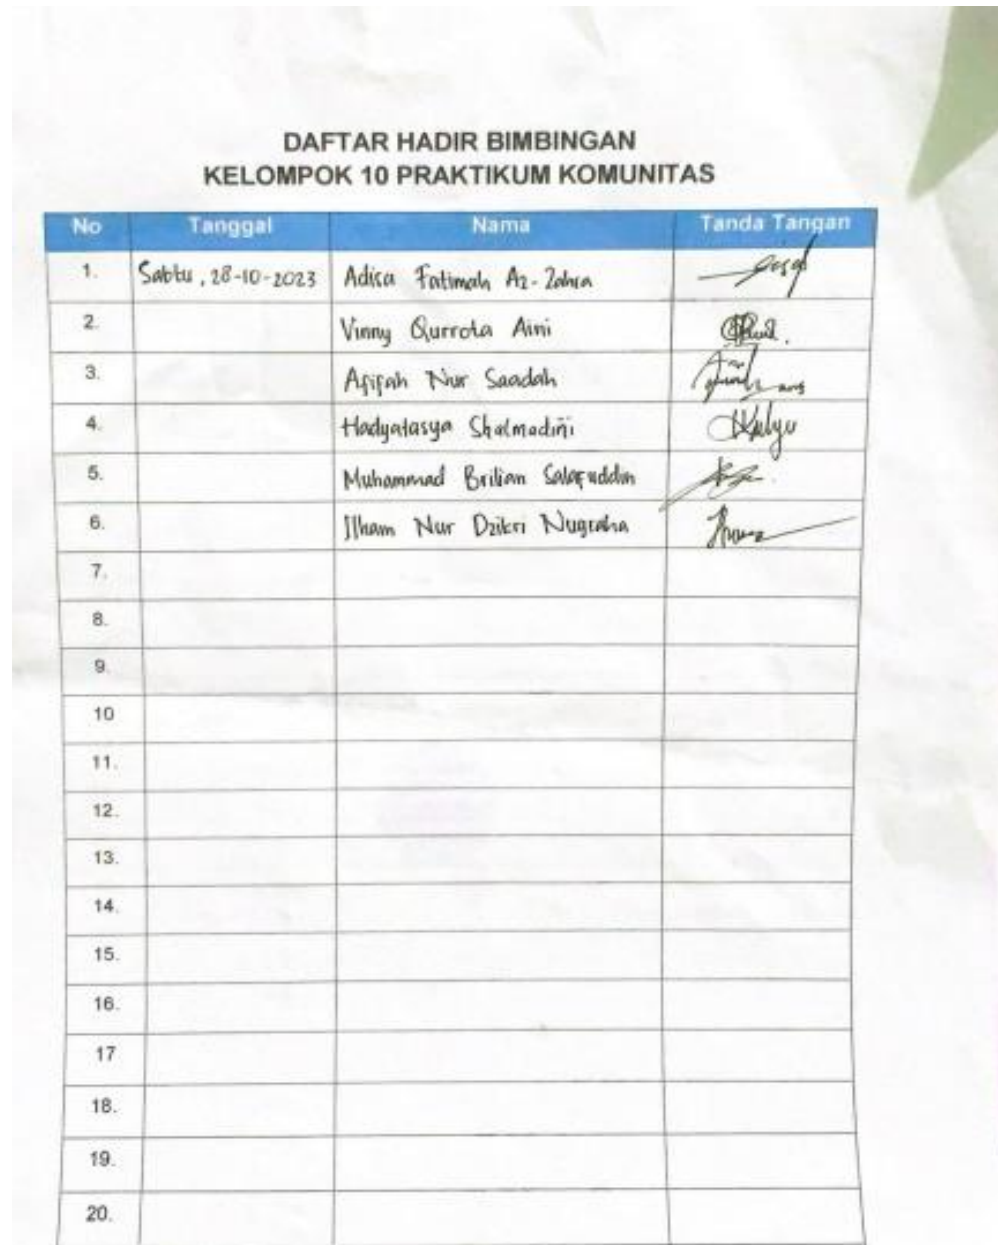 DAFTAR HADIR BIMBINGAN
KELOMPOK 10 PRAKTIKUM KOMUNITAS
No Tanggal Nama Tanda Tangan
1. Sabtu, 28-10-2023 Adisa Fatimah Az-Zahra
2. Vinny Qurrota Aini
3. Afifah Nur Saadah
4. Hadyatasya Shalmadini
5. Muhammad Brilian Salafuddin
6. Ilham Nur Dzikri Nugraha
7.
8.
9.
10
11.
12.
13.
14.
15.
16.
17
18.
19.
20.